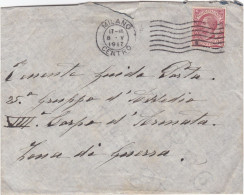 MILANO
17-18
8-V
1917
CENTRO
Tenente Guido
25° Gruppo d'Assedio
VIII° Corpo d'Armata
Zona di Guerra.